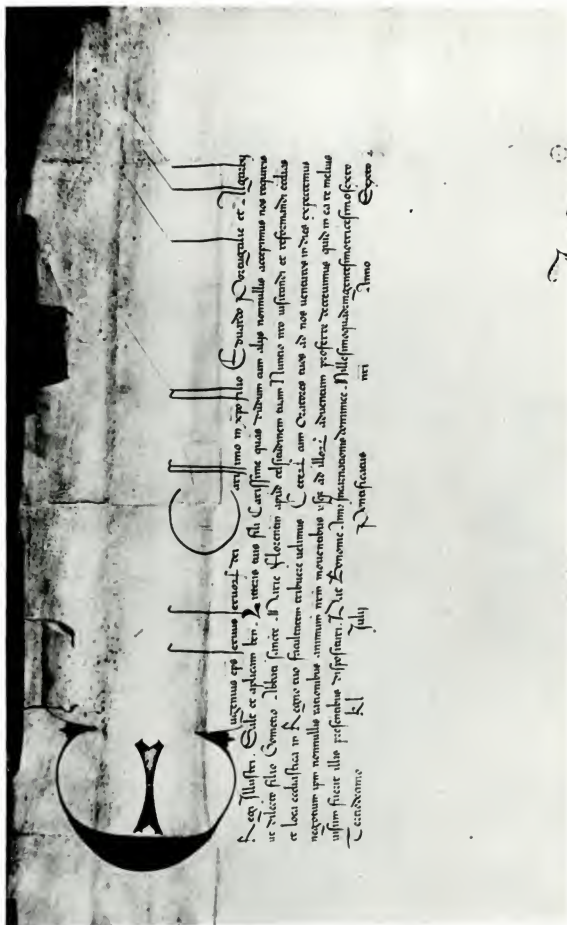 Eugenius eps seruus seruoꝝ dei Carissimo in xpo filio Eduardo Portugalie et Algarbij
Regi Illustri. Salt et aplicam ben. Litteris tuis fili Carissime quas dudum cum alijs nonnullis accepimus nos requiris
ut dilecto filio Gometio Abbati sancte Marie Florentin apud celsitudinem tuam Nuntio nro uisitandi et reformandi ecclias
et loca ecclastica in Regno tuo facultatem tribuere uelimus Ceterum cum Oratores tuos ad nos uenturos in dies expectemus
negotium ipm nonnullis rationibus animum nrm mouentibus usqꝫ ad illoꝝ aduentum proferre decreuimus quid in ea re melius
uisum fuerit illis presentibus disposituri. Dat Bononie Anno Incarnationis dominice Millesimoquadringentesimotricesimosexto
Terciodecimo kl Julij Pontificatus nri Anno Sexto